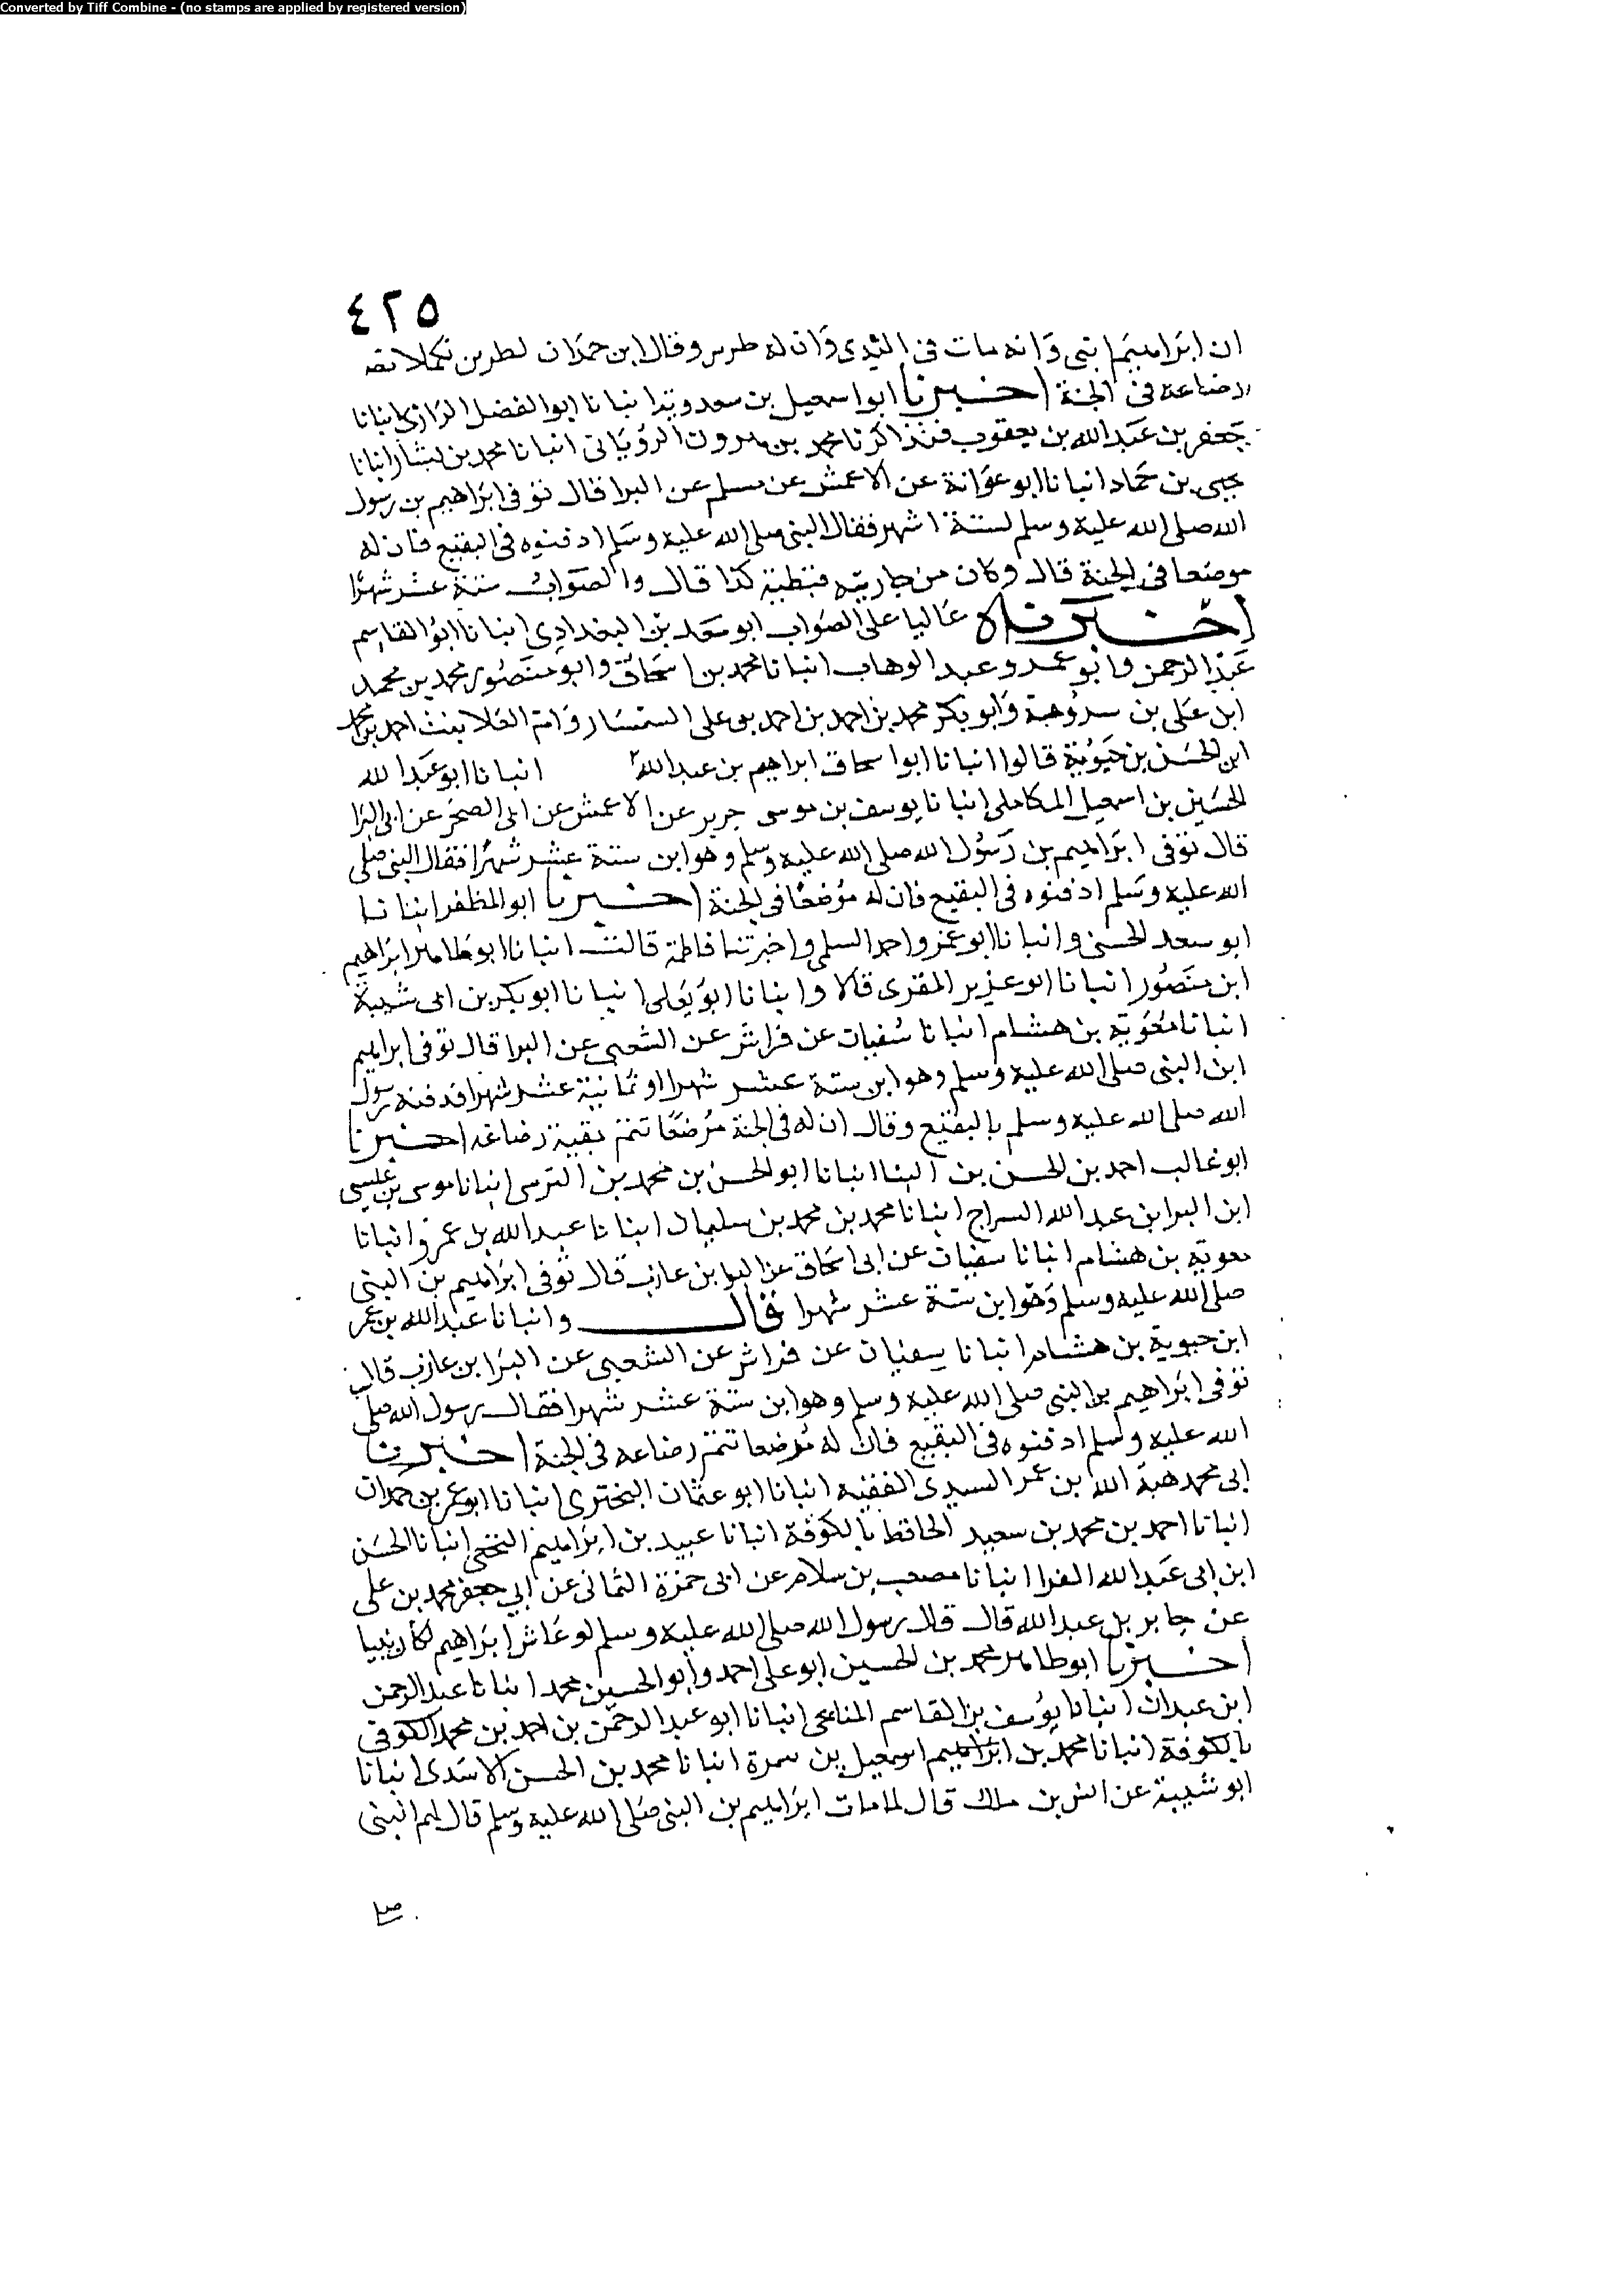 Converted by Tiff Combine - (no stamps are applied by registered version)
٤٢٥
ان ابراهيم ابنى وانه مات فى الثدى وان له طرس وقال ابن حمدان لطرين تكملا نه
رضاعه فى الجنة اخبرنا ابوا سمعيل بن سعدويه انبانا ابو الفضل الرازى انبانا
جعفر بن عبد الله بن يعقوب فنذاكرنا محمد بن هرون الرويانى انبانا محمد بن بشار انبانا
يحيى بن حماد انبانا ابو عوانة عن الاعمش عن مسلم عن البرا قال توفى ابراهيم بن رسول
الله صلى الله عليه وسلم لستة اشهر فقال النبى صلى الله عليه وسلم ادفنوه فى البقيع فان له
موضعا فى الجنة قال وكان من جاريته قبطية كذا قال والصواب ستة عشر شهرا
اخبرناه عاليا على الصواب ابو سعد بن البغدادى انبانا ابو القاسم
عبد الرحمن وابو عمرو عبد الوهاب انبانا محمد بن اسحاق وابو منصور محمد بن محمد
ابن على بن سدوهة وابو بكر محمد بن احمد بن احمد بن على السمسار وام العلا بنت احمد بن محمد
ابن الحسن بن حيوية قالوا انبانا ابوا سحاق ابراهيم بن عبد الله انبانا ابو عبد الله
الحسين بن اسمعيل المحاملى انبانا يوسف بن موسى جرير عن الاعمش عن ابى الضحى عن ابى البرا
قال توفى ابراهيم بن رسول الله صلى الله عليه وسلم وهو ابن ستة عشر شهرا فقال النبى صلى
الله عليه وسلم ادفنوه فى البقيع فان له مرضعا فى الجنة اخبرنا ابو المظفر انبانا
ابو سعد الحسنى وانبانا ابو عمرو احمد السلمى واخبرتنا فاطمة قالت انبانا ابو طاهر ابراهيم
ابن منصور انبانا ابو عزير المقرى قالا وانبانا ابو يعلى انبانا ابو بكر بن ابى شيبة
انبانا معوية بن هشام انبانا سفيان عن فراش عن الشعبى عن البرا قال توفى ابراهيم
ابن النبى صلى الله عليه وسلم وهو ابن ستة عشر شهرا او ثمانية عشر شهرا فدفنه رسول
الله صلى الله عليه وسلم بالبقيع وقال ان له فى الجنة مرضعا تتم بقية رضاعه اخبرنا
ابو غالب احمد بن الحسن بن البنا انبانا ابو الحسن بن محمد بن النرسى انبانا موسى بن عيسى
ابن البرا بن عبد الله السراج انبانا محمد بن محمد بن سليمان انبانا عبد الله بن عمر وانبانا
معوية بن هشام انبانا سفيان عن ابى اسحاق عن البرا بن عازب قال توفى ابراهيم بن النبى
صلى الله عليه وسلم وهو ابن ستة عشر شهرا قال وانبانا عبد الله بن عمر
ابن حيوية بن هشام انبانا سفيان عن فراش عن الشعبى عن البرا بن عازب قال
توفى ابراهيم بن النبى صلى الله عليه وسلم وهو ابن ستة عشر شهرا فقال رسول الله صلى
الله عليه وسلم ادفنوه فى البقيع فان له مرضعا تتم رضاعه فى الجنة اخبرنا
ابى محمد هبة الله بن عمر السيدى الفقيه انبانا ابو عثمان البخترى انبانا ابو عمر بن حمدان
انبانا احمد بن محمد بن سعيد الحافظ بالكوفة انبانا عبيد بن ابراهيم النخعى انبانا الحسن
ابن ابى عبد الله الفرا انبانا مصعب بن سلام عن ابى حمزة الثمالى عن ابي جعفر محمد بن على
عن جابر بن عبد الله قال قال رسول الله صلى الله عليه وسلم لو عاش ابراهيم لكان نبيا
اخبرنا ابو طاهر محمد بن الحسين ابو على احمد وابو الحسين محمد انبانا عبد الرحمن
ابن عبدان انبانا يوسف بن القاسم المناعى انبانا ابو عبد الرحمن بن احمد بن محمد الكوفى
بالكوفة انبانا محمد بن ابراهيم اسمعيل بن سمرة انبانا محمد بن الحسن الاسدى انبانا
ابو شيبة عن انس بن ملك قال لما مات ابراهيم بن النبى صلى الله عليه وسلم قال لهم النبى
صلى